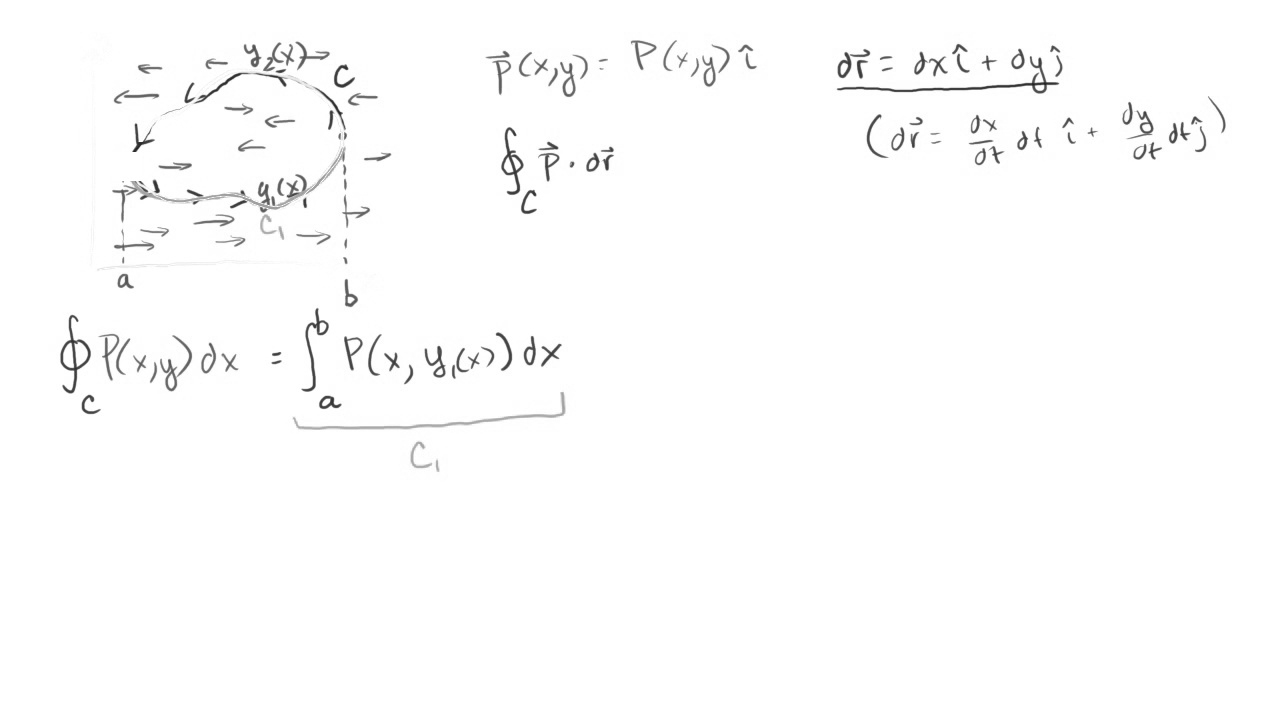 y₂(x)
C
y₁(x)
C₁
a
b
p⃗(x,y) = P(x,y) î
∮_C p⃗ · dr⃗
dr⃗ = dx î + dy ĵ
(dr⃗ = dx/dt dt î + dy/dt dt ĵ)
∮_C P(x,y) dx = ∫_a^b P(x, y₁(x)) dx
C₁